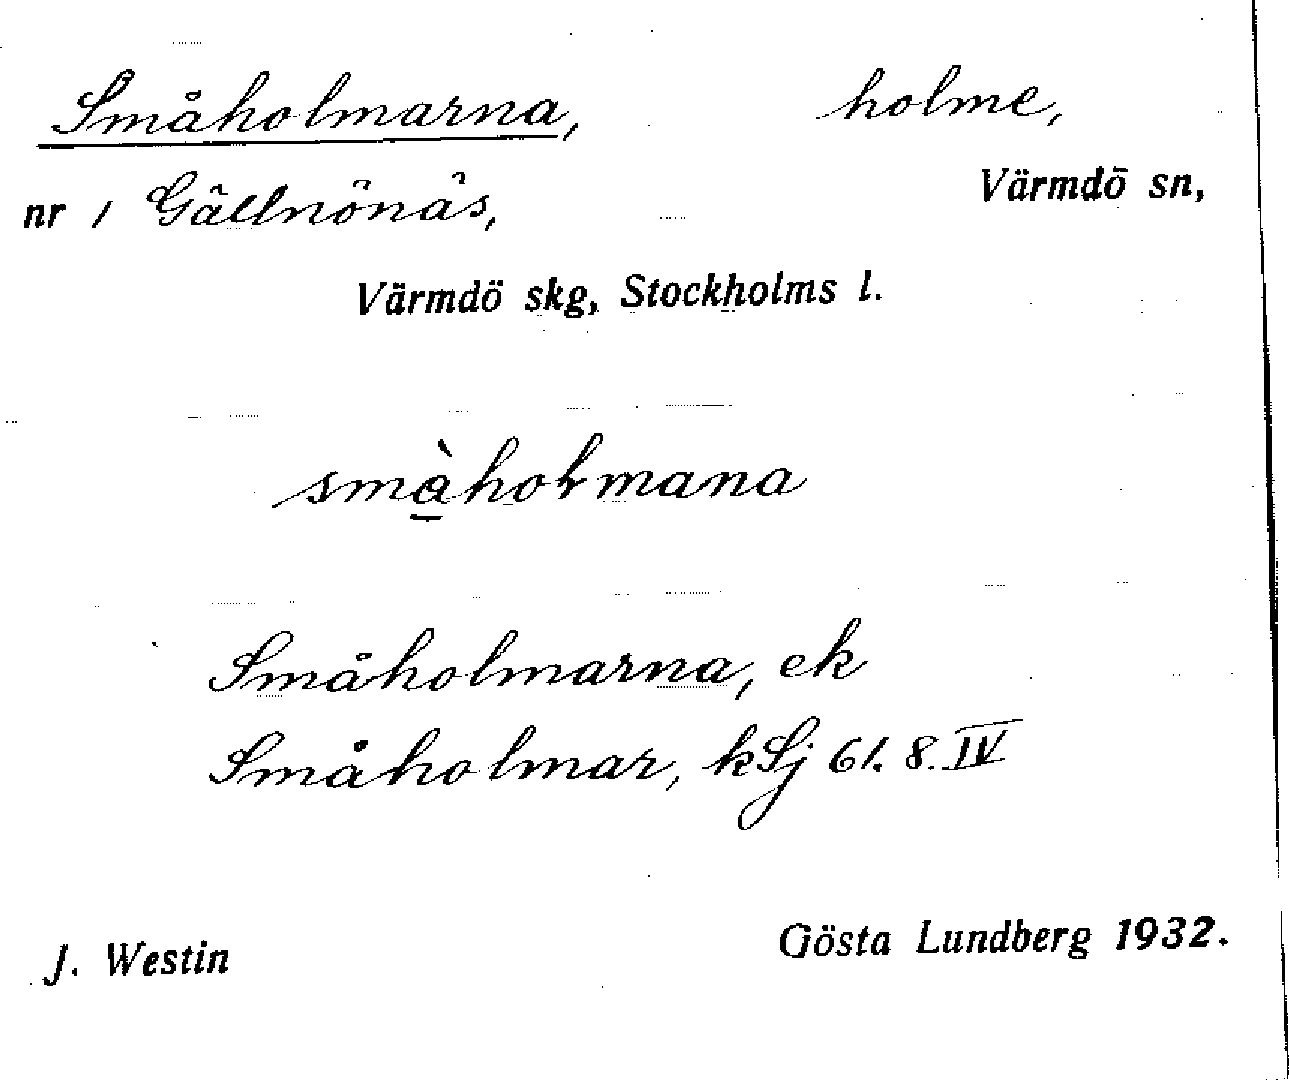 Småholmarna, holme,
nr 1 Gällnönäs, Värmdö sn,
Värmdö skg, Stockholms l.
smàholmana
Småholmarna, ek
Småholmar, kSj 61. 8. IV
J. Westin Gösta Lundberg 1932.